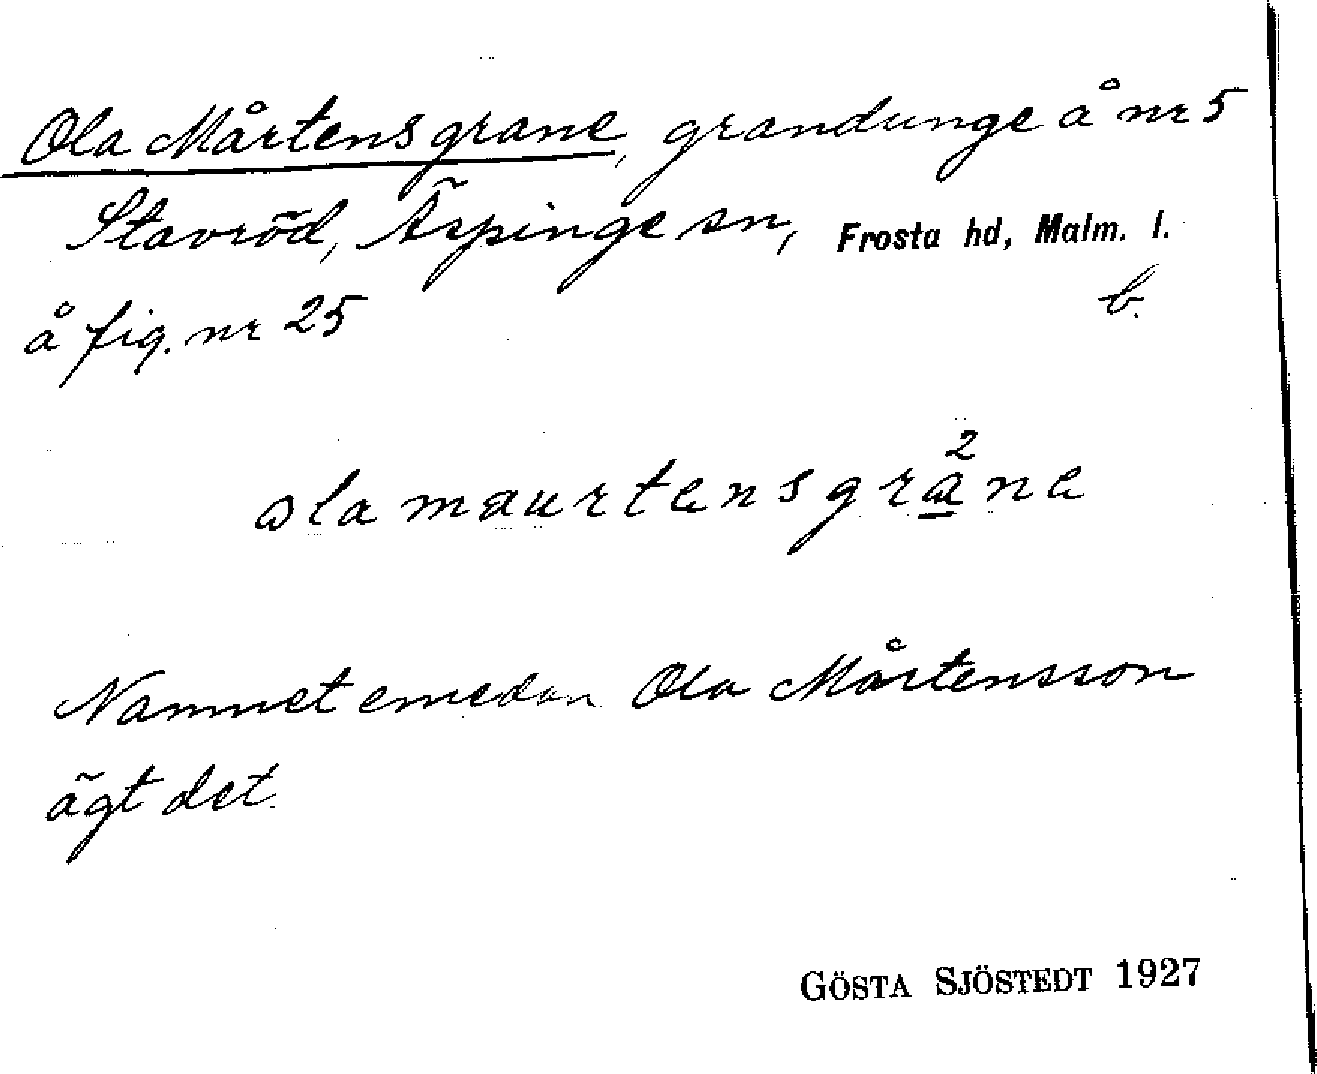 Ola Mårtens grane, grandunge å nr 5
Stavröd, Äspinge sn, Frosta hd, Malm. l.
å fig. nr 25 b.
ola maurtens gra²ne
Namnet emedan Ola Mårtensson
ägt det.
GÖSTA SJÖSTEDT 1927